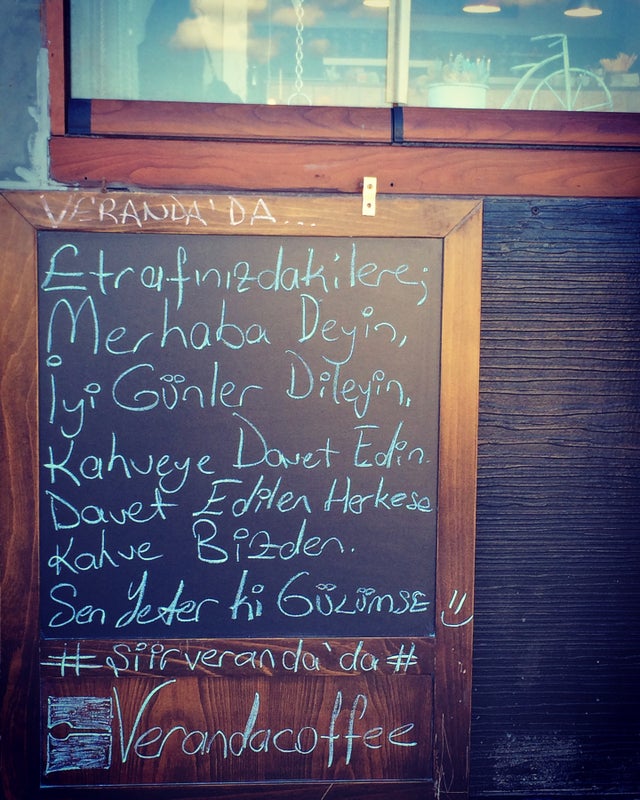 VERANDA'DA...
Etrafınızdakilere;
Merhaba Deyin,
İyi Günler Dileyin,
Kahveye Davet Edin.
Davet Edilen Herkese
Kahve Bizden.
Sen Yeter ki GÜLÜMSE :)
#şiirveranda'da#
Verandacoffee